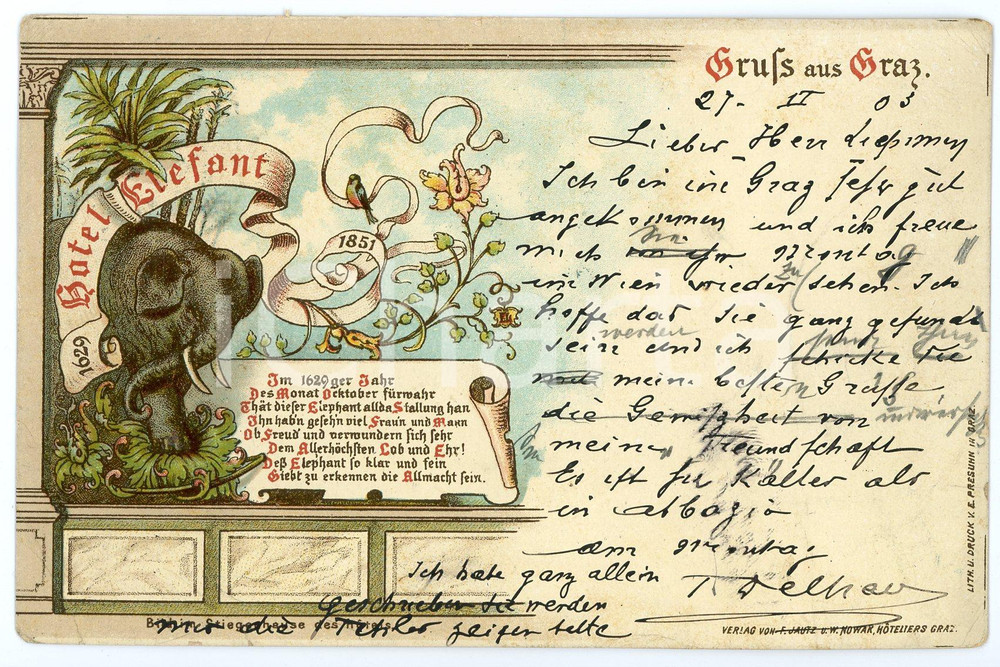 Gruſs aus Graz.
27. II 03
Lieber Herr
Ich bin in Graz sehr gut
angekommen und ich freue
mich Montag
im Wien wieder zu sehen. Ich
hoffe das Sie ganz gesund
werden
sein und ich schicke Sie
meine besten Grüsse
die von
meine Freundschaft
Es ist hier Kälter als
in abbazia
am Montag
Ich habe ganz allein
geschrieben Sie werden
mir die Fehler zeigen bitte
Hotel Elefant
1629
1851
Im 1629ger Jahr
Des Monat Ocktober fürwahr
Thät dieser Elephant allda Stallung han
Ihn hab'n gesehn viel Frau'n und Mann
Ob Freud' und verwundern sich sehr
Dem Allerhöchsten Lob und Ehr!
Deß Elephant so klar und fein
Giebt zu erkennen die Allmacht sein.
Stiegenhause des Hotels
VERLAG VON F. JAUTZ U. W. NOWAK, HÔTELIERS GRAZ.
LITH. U. DRUCK V. E. PRESUHN IN GRAZ